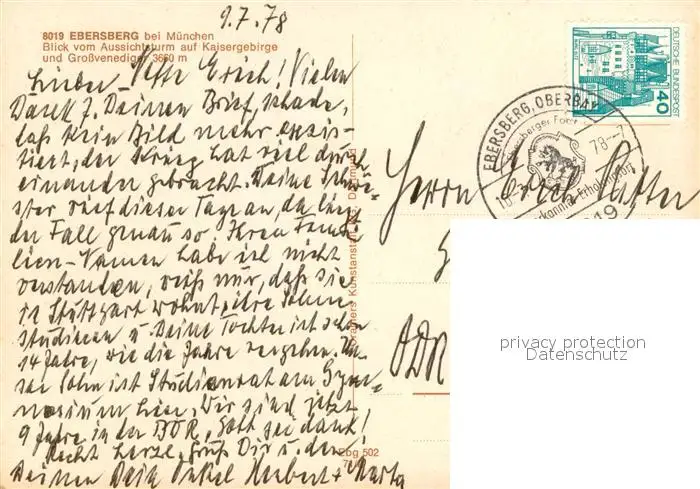 9.7.78
8019 EBERSBERG bei München
Blick vom Aussichtsturm auf Kaisergebirge
und Großvenediger 3660 m
Lieber Neffe Erich! Vielen
Dank f. Deinen Brief, schade,
daß kein Bild mehr exis-
tiert, der Krieg hat viel durch-
einander gebracht. Deine Schwe-
ster rief dieser Tage an, da liegt
der Fall genau so. Ihren Fami-
lien-Namen habe ich nicht
verstanden, weiß nur, daß sie
in Stuttgart wohnt, ihre Söhne
studieren u. Deine Tochter ist schon
14 Jahre, wie die Jahre vergehen. Un-
ser Sohn ist Studienrat am Gym-
nasium hier. Wir sind jetzt
9 Jahre in der BDR, Gott sei dank!
Recht herzl. Grüß Dir u. den
Deinen Dein Onkel Herbert + Marta
DEUTSCHE BUNDESPOST
40
EBERSBERG, OBERBAY
Ebersberger Forst
78--7
Erholungsort
8019
Herrn Erich
DDR
Cramers Kunstanstalt Dortmund
Ebg 502
privacy protection
Datenschutz